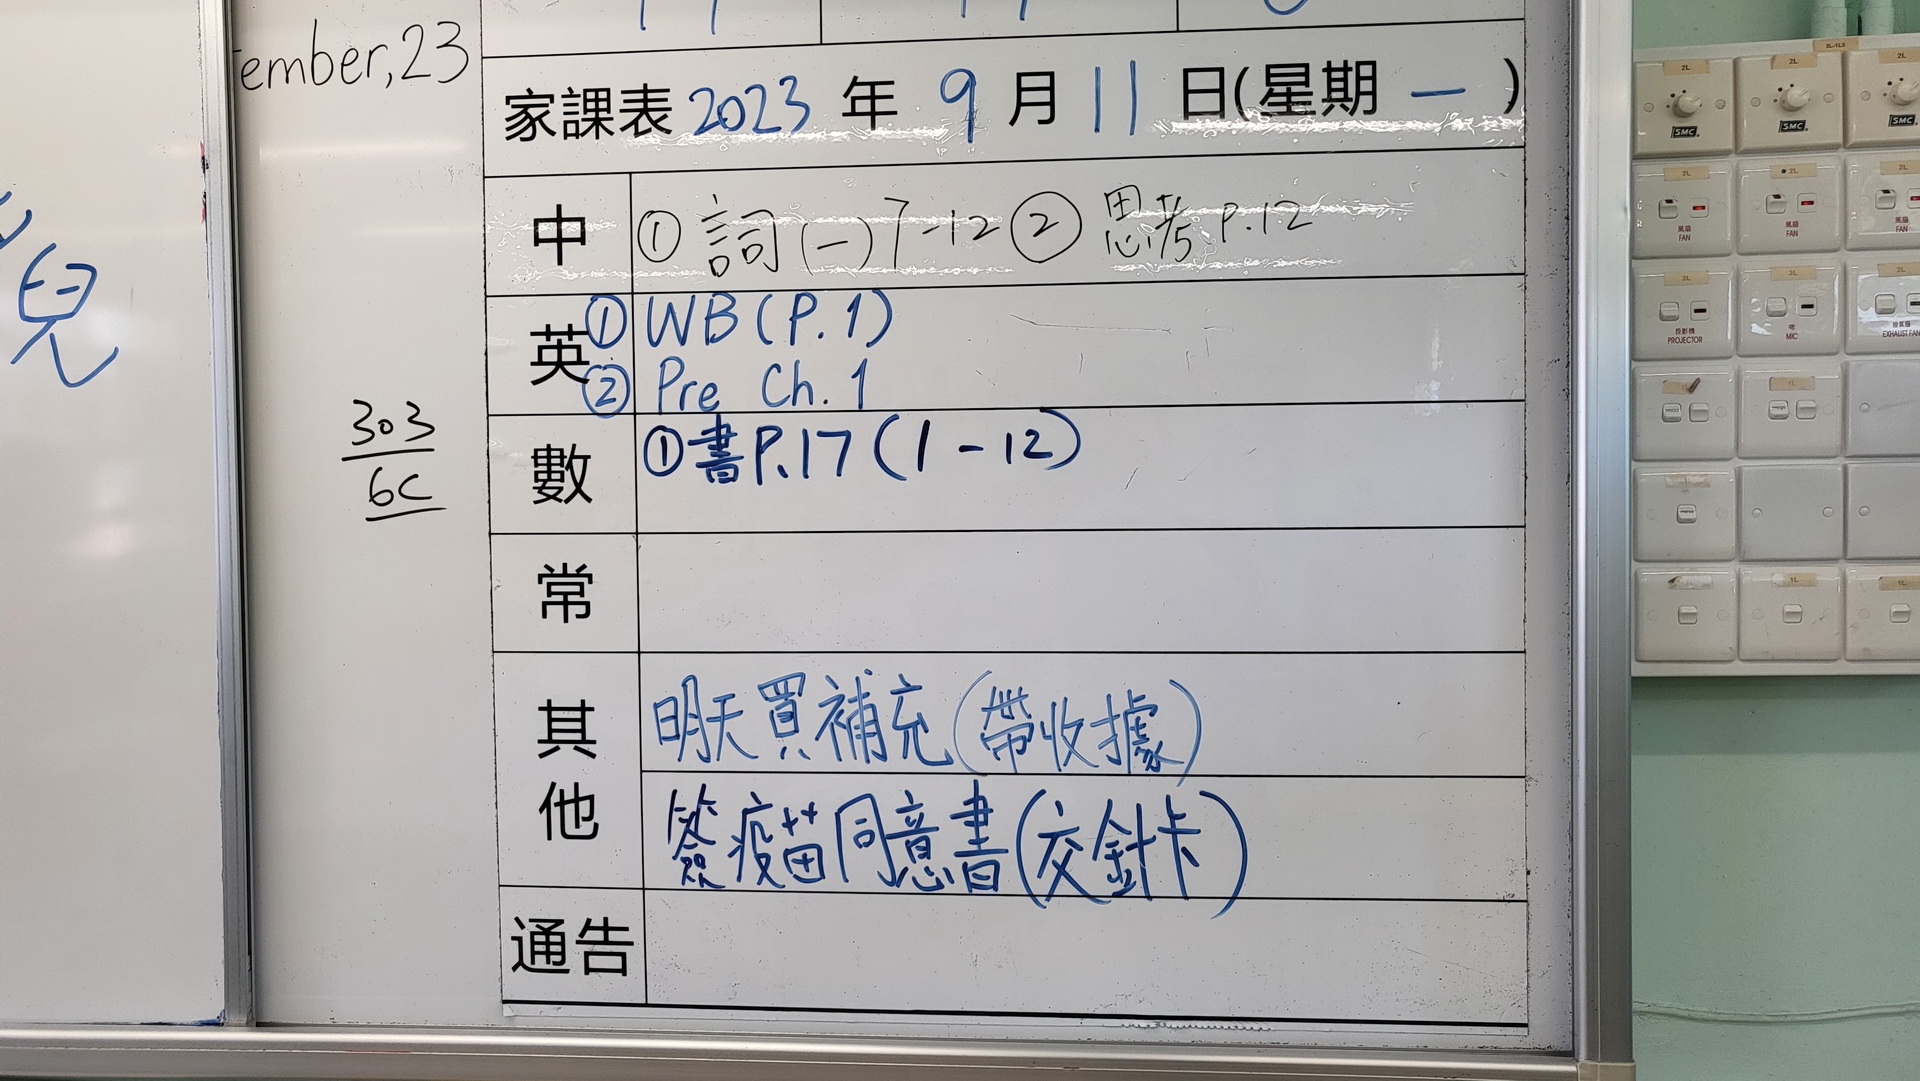 ember,23
家課表 2023 年 9 月 11 日(星期 一 )
中 ① 詞(一)7-12 ② 思考 P.12
英 ① WB (P.1)
② Pre Ch. 1
數 ① 書 P.17 (1-12)
303
6C
常
其他 明天買補充(帶收據)
簽疫苗同意書(交針卡)
通告
兒
2L-1L3
2L
2L
2L
SMC
SMC
SMC
2L
2L
2L
風扇
FAN
風扇
FAN
風扇
FAN
3L
3L
2L
投影機
PROJECTOR
咪
MIC
抽氣扇
EXHAUST FAN
1L
1L
1L